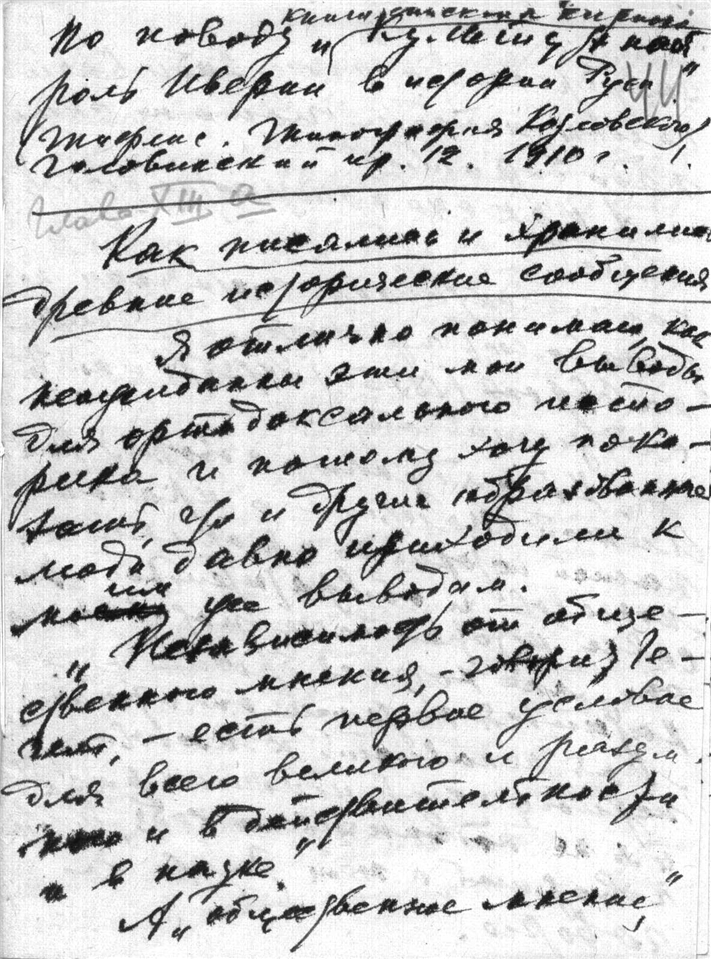 книги
По поводу и „Культурная
роль Иверии в истории Руси“
44
(Тифлис. Типография Козловского)
Головинский пр. 12. 1910 г.
Глава XIII a
Как писались и хранились
древние исторические сообщения
Я отлично понимаю, как
неожиданны эти мои выводы
для ортодоксального исто-
рика и потому хочу пока-
зать, что и другие образованные
люди давно приходили к
моим уже выводам.
„Независимость от обще-
ственного мнения, – говорит Ге-
гель, – есть первое условие
для всего великого и разум
ного и в действительности
и в науке“
А „общественное мнение“,